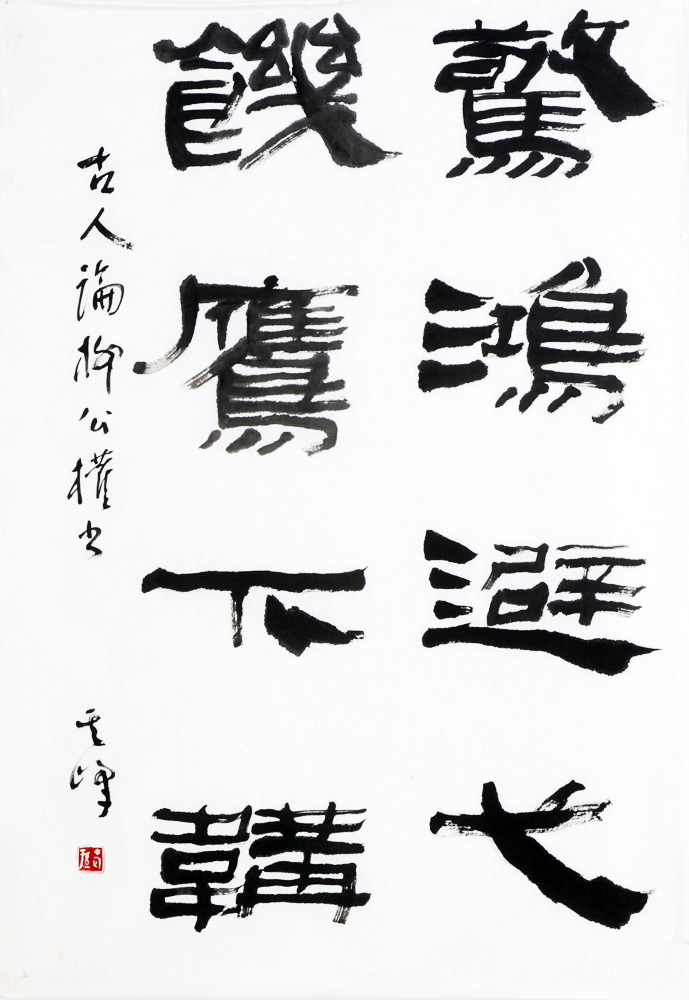 驚鴻避弋
饑鷹下韝
古人論柳公權書
雲峰